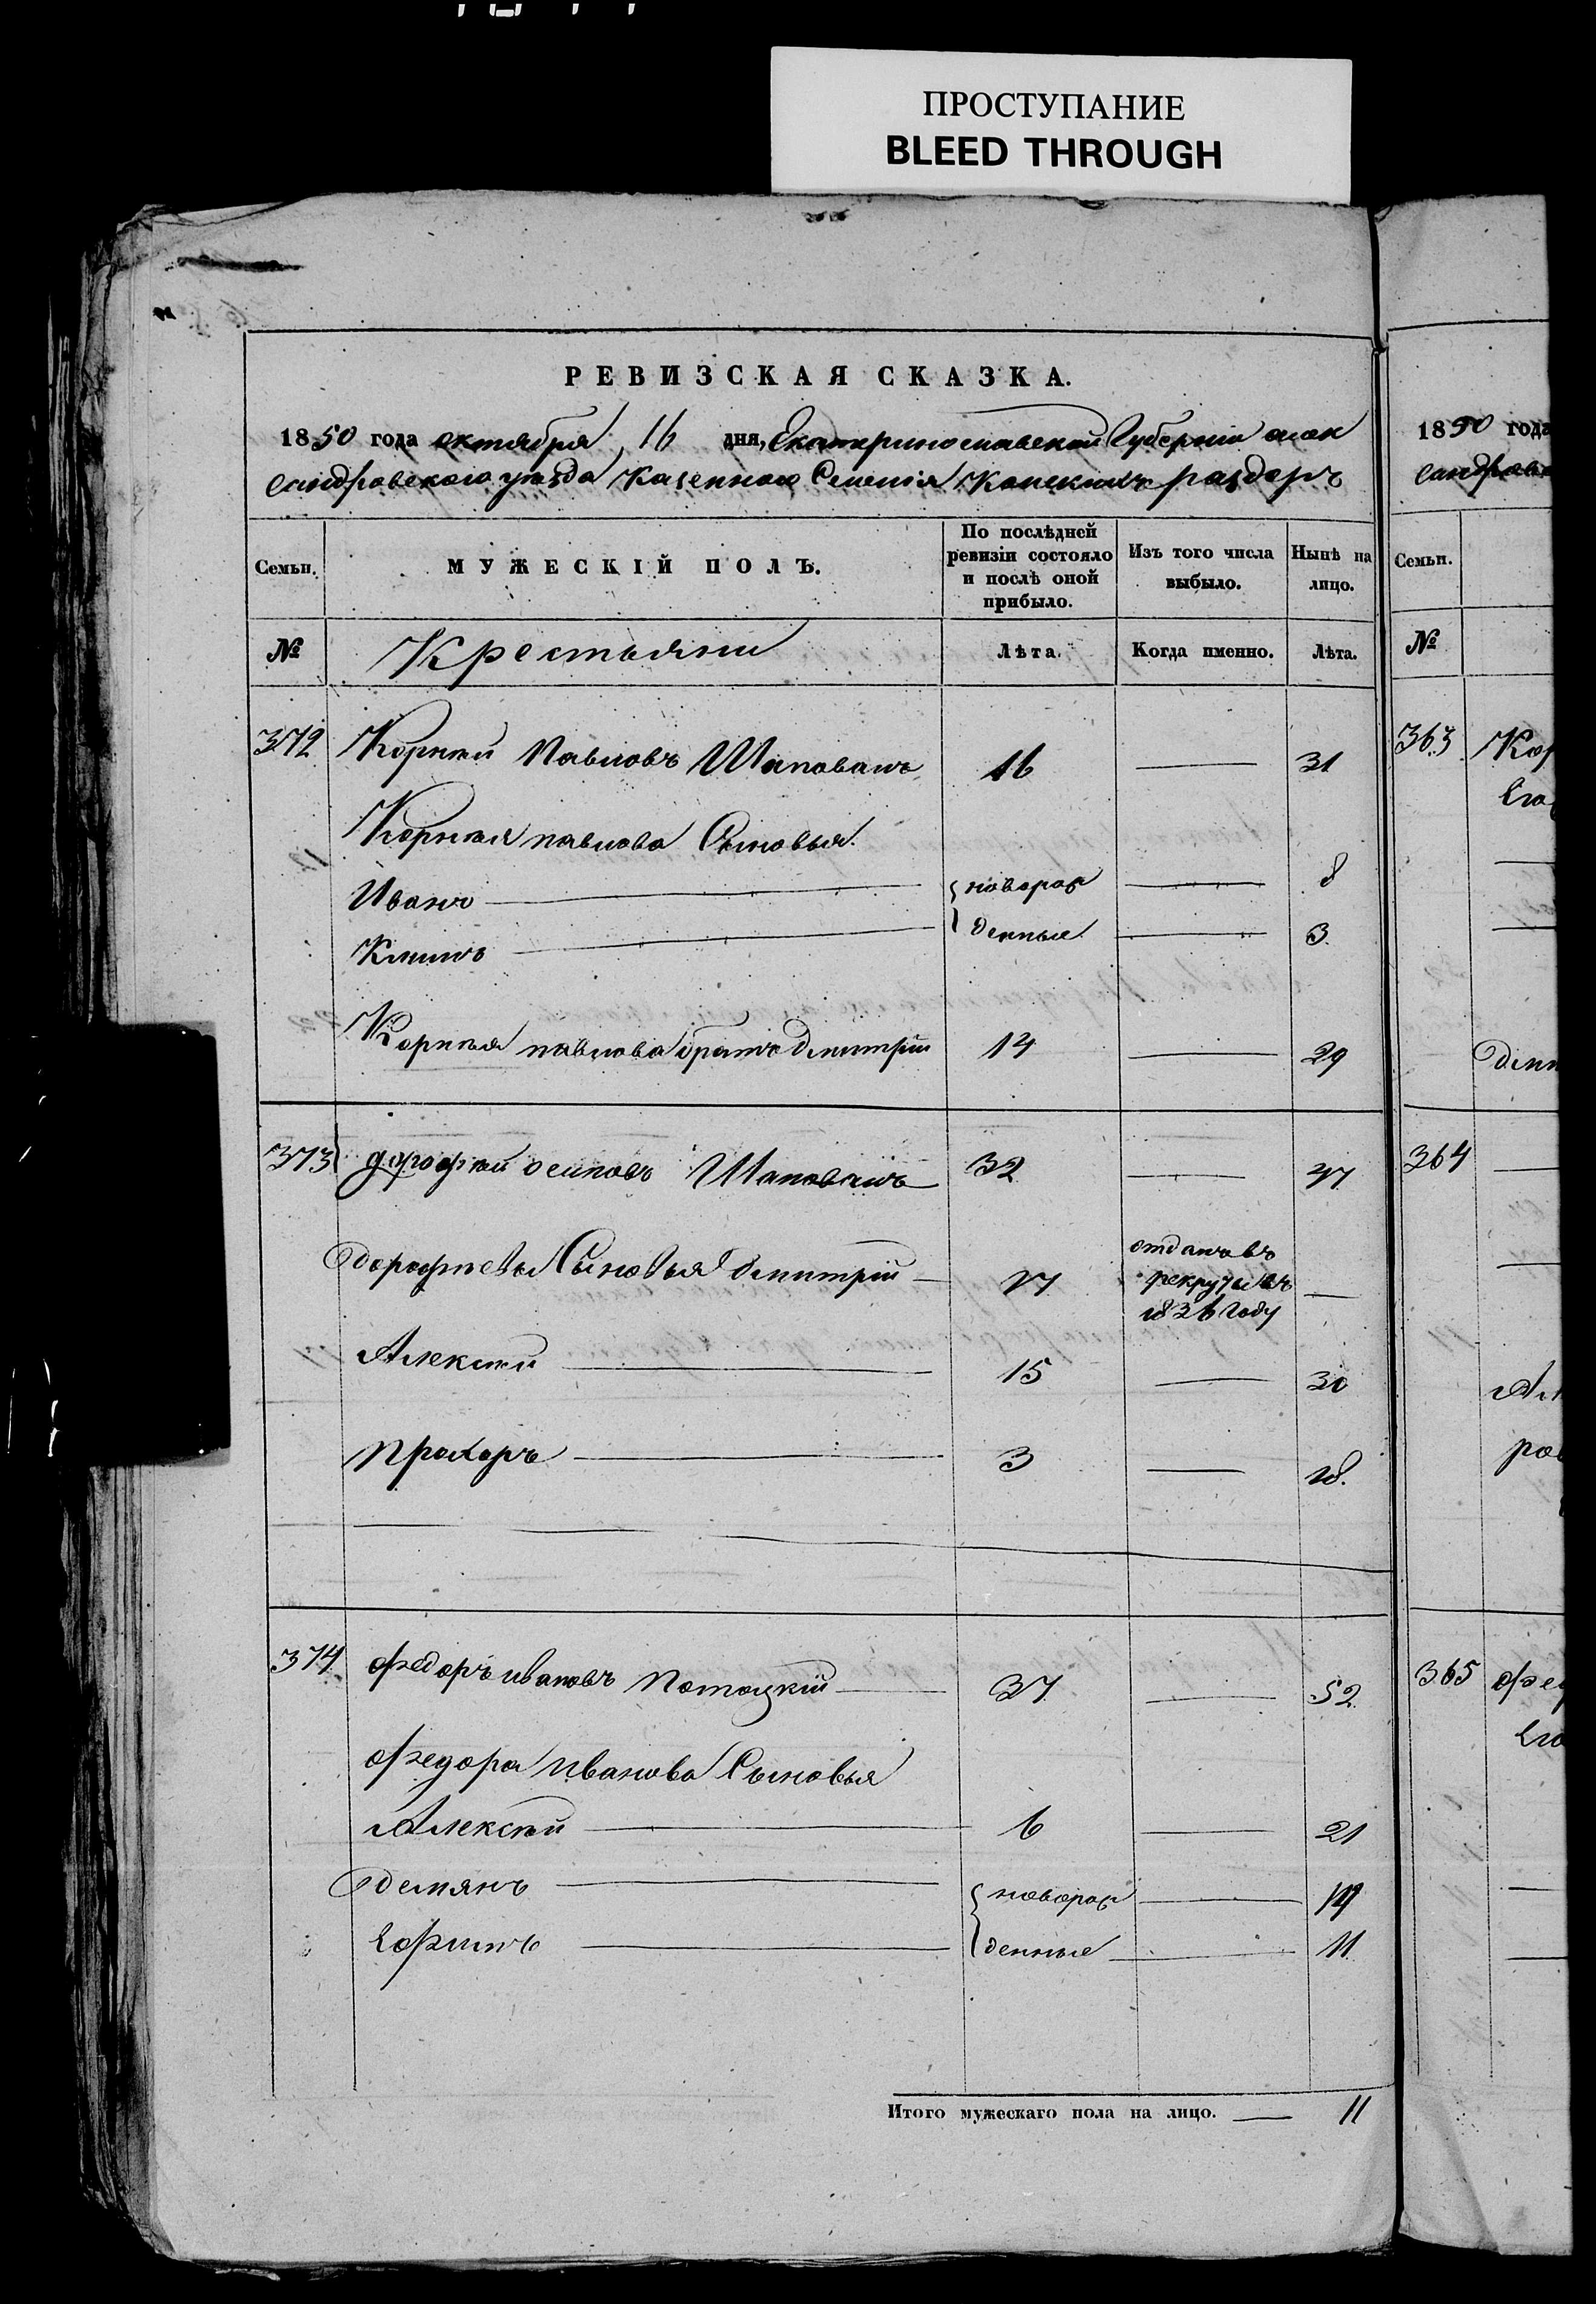 ПРОСТУПАНИЕ
BLEED THROUGH
РЕВИЗСКАЯ СКАЗКА.
1850 года октября 16 дня, Екатеринославской Губерніи алек
сандровского уѣзда Казенного Селенія Конскихъ раздоръ
Семьи. МУЖЕСКІЙ ПОЛЪ. По послѣдней ревизіи состояло и послѣ оной прибыло. Изъ того числа выбыло. Нынѣ на лицо.
№ Крестьяни Лѣта. Когда именно. Лѣта.
372 Корнѣй Павловъ Шаповалъ 16 — 31
Корнѣя павлова Сыновья
Иванъ — новорож — 8
Климъ — денные — 3
Корнѣя павлова братъ Дмитрій 14 — 29
373 дорофѣй осиповъ Шаповалъ 32 — 47
Дорофѣевы Сыновья Дмитрій — 17 отданъ въ рекруты въ 1836 году —
Алексѣй — 15 — 30
прохоръ — 3 — 18.
374 федоръ ивановъ Потоцкій — 37 — 52
федора Иванова Сыновья
Алексѣй — 6 — 21
Демянъ — новорож — 14
Ефимъ — денные — 11
Итого мужескаго пола на лицо. — 11
1850 года
сандровс
Семьи.
№
363 Кор
Его
Дми
364 —
Ал
365 фед
Его